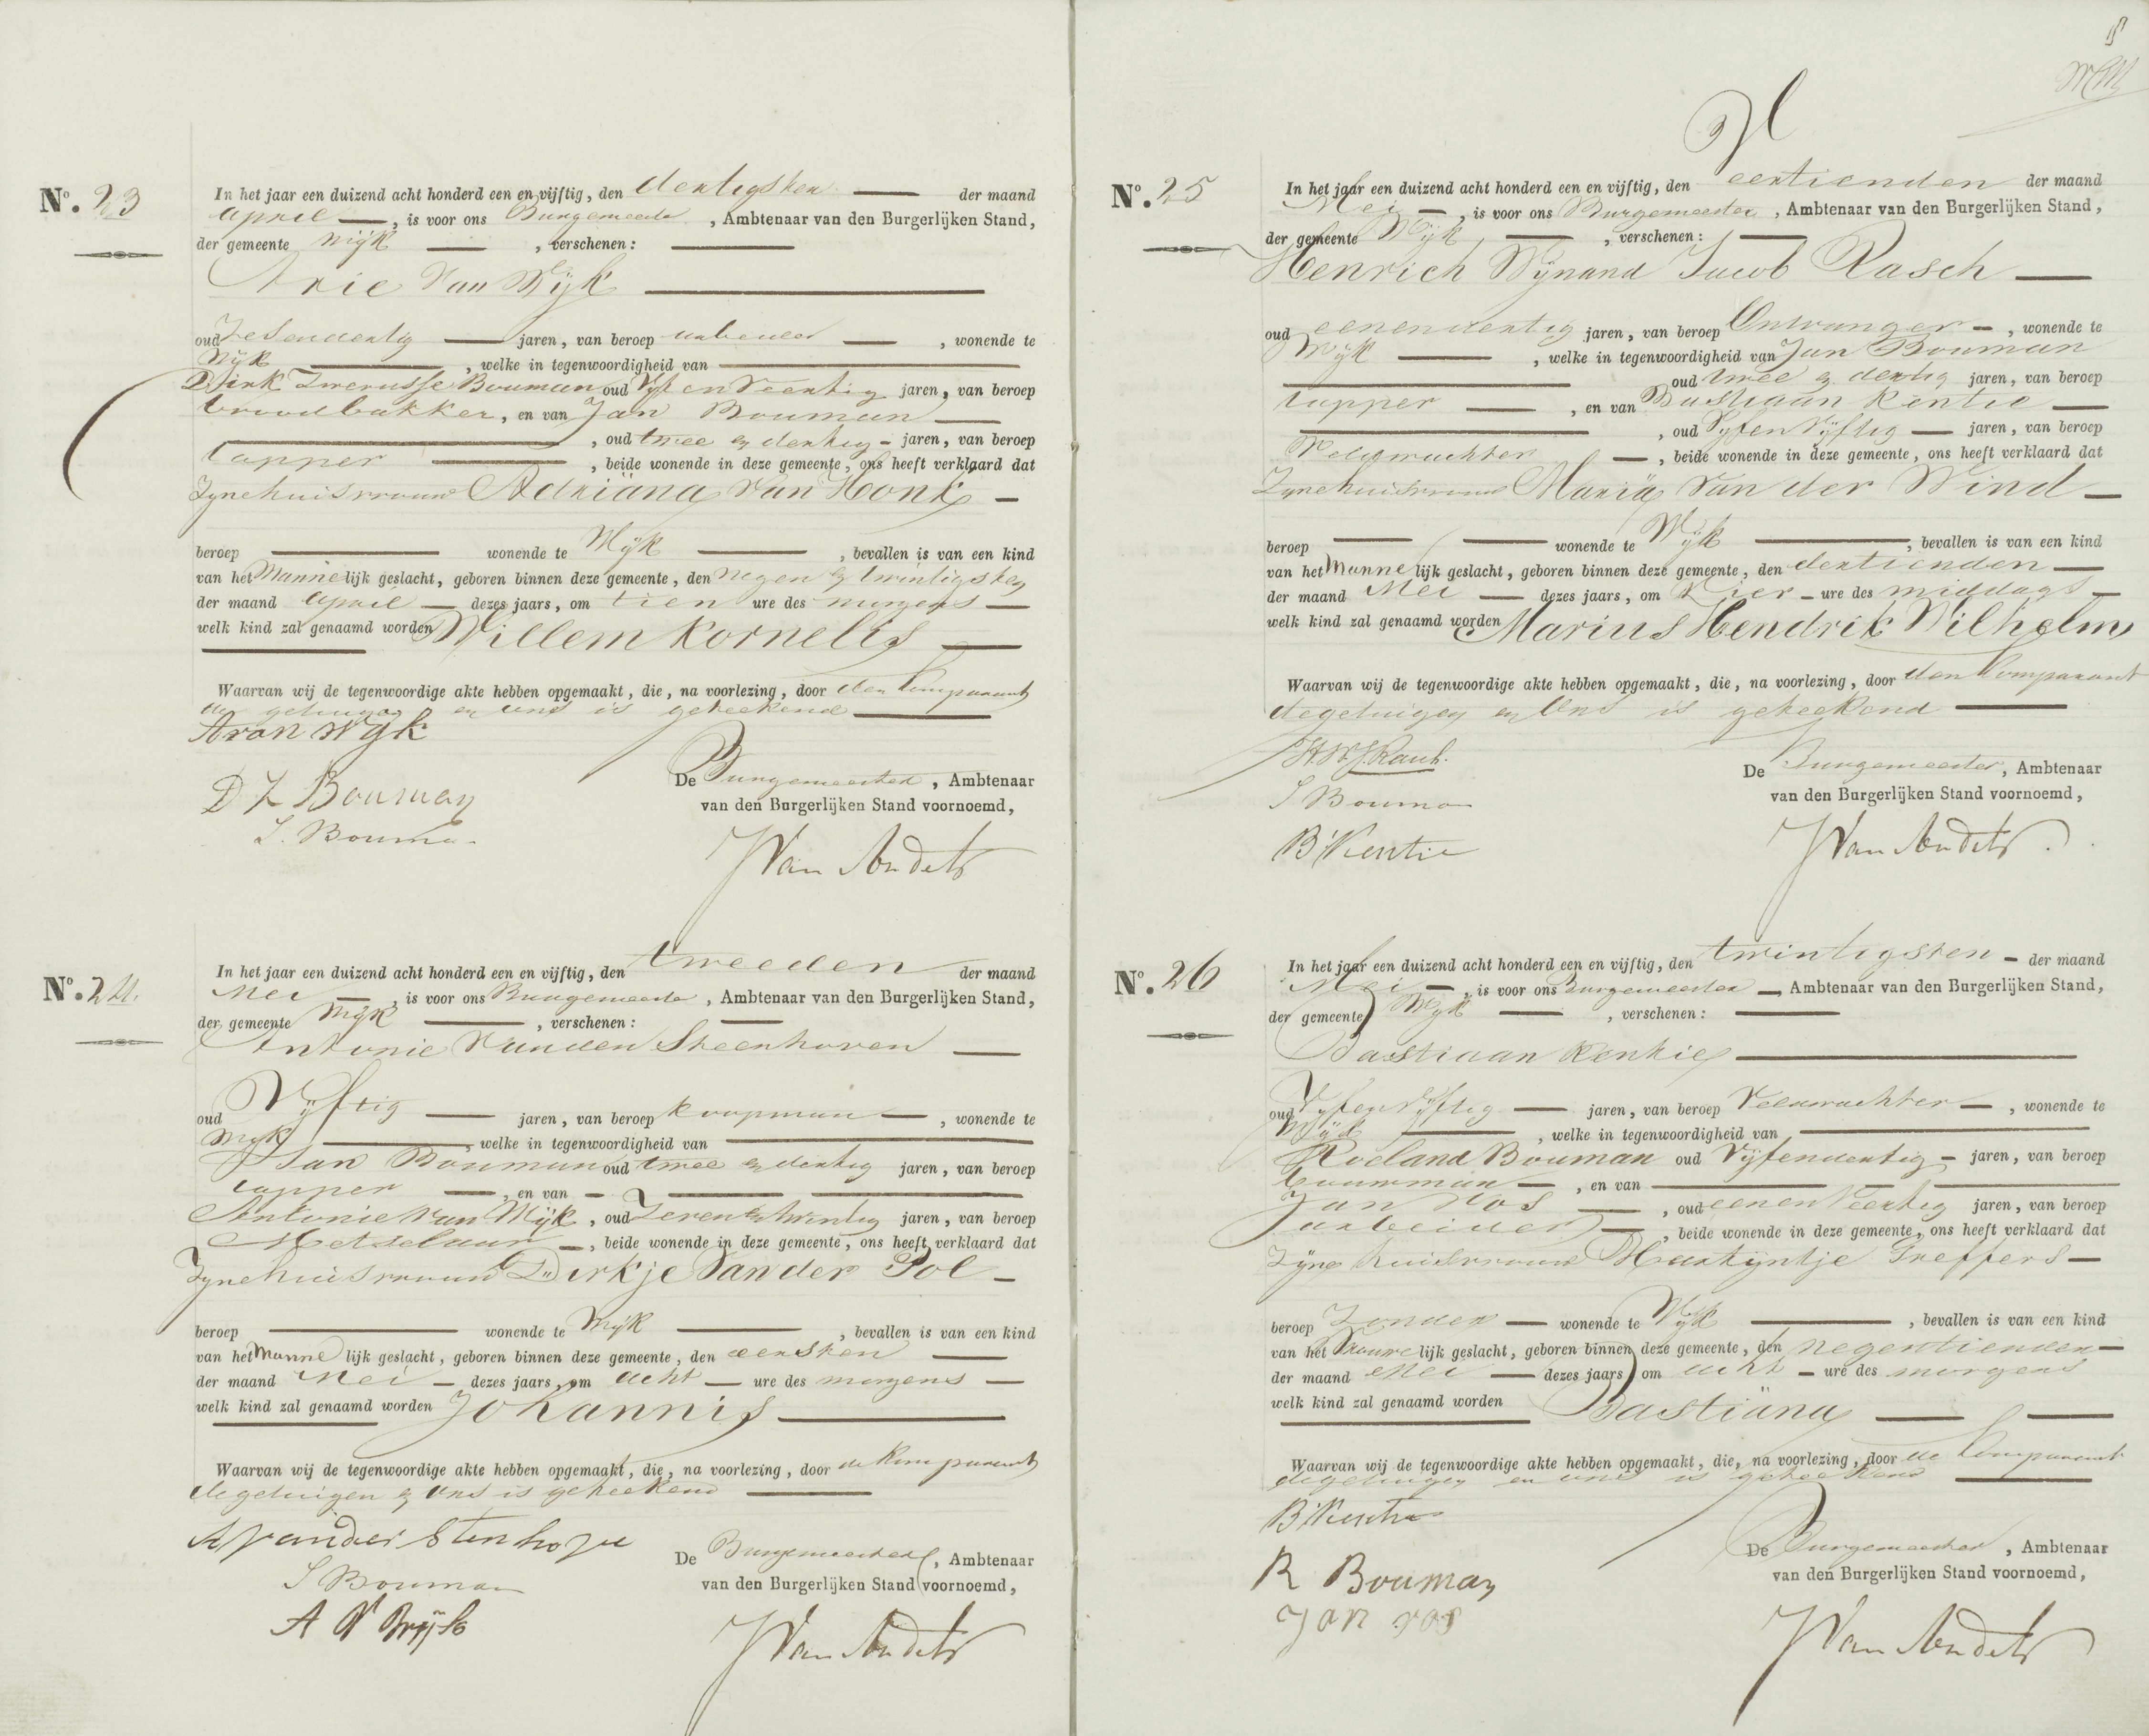 No. 23
In het jaar een duizend acht honderd een en vijftig, den dertigsten der maand
April, is voor ons Burgemeester, Ambtenaar van den Burgerlijken Stand,
der gemeente Wijk, verschenen:
Arie Van Wijk
oud Zesendertig jaren, van beroep arbeider, wonende te
Wijk, welke in tegenwoordigheid van
Dirk Bouman oud Vijf en Veertig jaren, van beroep
broodbakker, en van Jan Bouman
, oud twee en dertig jaren, van beroep
tapper, beide wonende in deze gemeente, ons heeft verklaard dat
Zyne huisvrouw Adriäna Van Honk
beroep wonende te Wijk, bevallen is van een kind
van het Mannelijk geslacht, geboren binnen deze gemeente, den negen en twintigsten
der maand April dezes jaars, om tien ure des morgens
welk kind zal genaamd worden Willem Kornelis
Waarvan wij de tegenwoordige akte hebben opgemaakt, die, na voorlezing, door den Comparant
de getuigen en ons is geteekend
De Burgemeester, Ambtenaar
van den Burgerlijken Stand voornoemd,
D Z Bouman
J. Bouman
J Van Andel
No. 24.
In het jaar een duizend acht honderd een en vijftig, den tweeden der maand
Mei, is voor ons Burgemeester, Ambtenaar van den Burgerlijken Stand,
der gemeente Wijk, verschenen:
Antonie Van den Steenhoven
oud Vijftig jaren, van beroep koopman, wonende te
Wijk, welke in tegenwoordigheid van
Jan Bouman oud twee en dertig jaren, van beroep
tapper, en van
Antonie van Wijk, oud Zeven en twintig jaren, van beroep
Metselaar, beide wonende in deze gemeente, ons heeft verklaard dat
Zyne huisvrouw Dirkje Van der Pol
beroep wonende te Wijk, bevallen is van een kind
van het Mannelijk geslacht, geboren binnen deze gemeente, den eersten
der maand Mei dezes jaars, om acht ure des morgens
welk kind zal genaamd worden Johannis
Waarvan wij de tegenwoordige akte hebben opgemaakt, die, na voorlezing, door de Komparant
de getuigen en ons is geteekend
De Burgemeester, Ambtenaar
van den Burgerlijken Stand voornoemd,
J Bouman
J Van Andel
No. 25
In het jaar een duizend acht honderd een en vijftig, den Veertienden der maand
Mei, is voor ons Burgemeester, Ambtenaar van den Burgerlijken Stand,
der gemeente Wijk, verschenen:
Henrich Wynand Jacob Rasch
oud eenendertig jaren, van beroep Ontvanger, wonende te
Wijk, welke in tegenwoordigheid van Jan Bouman
oud twee en dertig jaren, van beroep
tapper, en van Bastiaan Kentie
, oud Vyfen Vyftig jaren, van beroep
Veldwachter, beide wonende in deze gemeente, ons heeft verklaard dat
Zyne huisvrouw Mariä Van der Wind
beroep wonende te Wijk, bevallen is van een kind
van het Mannelijk geslacht, geboren binnen deze gemeente, den dertienden
der maand Mei dezes jaars, om Vier ure des middags
welk kind zal genaamd worden Marius Hendrik Wilhelm
Waarvan wij de tegenwoordige akte hebben opgemaakt, die, na voorlezing, door den Comparant
de getuigen en Ons is geteekend
De Burgemeester, Ambtenaar
van den Burgerlijken Stand voornoemd,
H W J Rasch.
J Bouman
B Kentie
J Van Andel.
No. 26
In het jaar een duizend acht honderd een en vijftig, den twintigsten der maand
Mei, is voor ons Burgemeester, Ambtenaar van den Burgerlijken Stand,
der gemeente Wijk, verschenen:
Bastiaan Kentie
oud Vyfen Vyftig jaren, van beroep Veldwachter, wonende te
Wijk, welke in tegenwoordigheid van
Roeland Bouman oud Vijfendertig jaren, van beroep
bouwman, en van
Jan Vos, oud eenen Veertig jaren, van beroep
arbeider, beide wonende in deze gemeente, ons heeft verklaard dat
Zyne huisvrouw Martyntje Treffers
beroep Zonder wonende te Wijk, bevallen is van een kind
van het Vrouwelijk geslacht, geboren binnen deze gemeente, den negentienden
der maand Mei dezes jaars, om acht ure des morgens
welk kind zal genaamd worden Bastiäna
Waarvan wij de tegenwoordige akte hebben opgemaakt, die, na voorlezing, door de Comparant
de getuigen en ons is geteekend
De Burgemeester, Ambtenaar
van den Burgerlijken Stand voornoemd,
B Kentie
R Bouman
Jan vos
J Van Andel